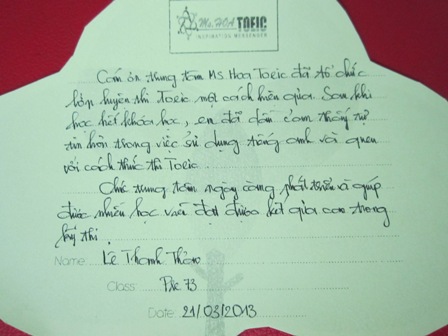 Ms. HOA TOEIC
INSPIRATION MESSENGER
Cám ơn trung tâm Ms Hoa Toeic đã tổ chức
lớp luyện thi Toeic một cách hiệu qủa. Sau khi
học hết khóa học, em đã dần cảm thấy tự
tin hơn trong việc sử dụng tiếng anh và quen
với cách thức thi Toeic.
Chúc trung tâm ngày càng phát triển và giúp
được nhiều học viên đạt được kết qủa cao trong
kỳ thi.
Name: Lê Thanh Thảo
Class: Pre 73
Date: 21/03/2013